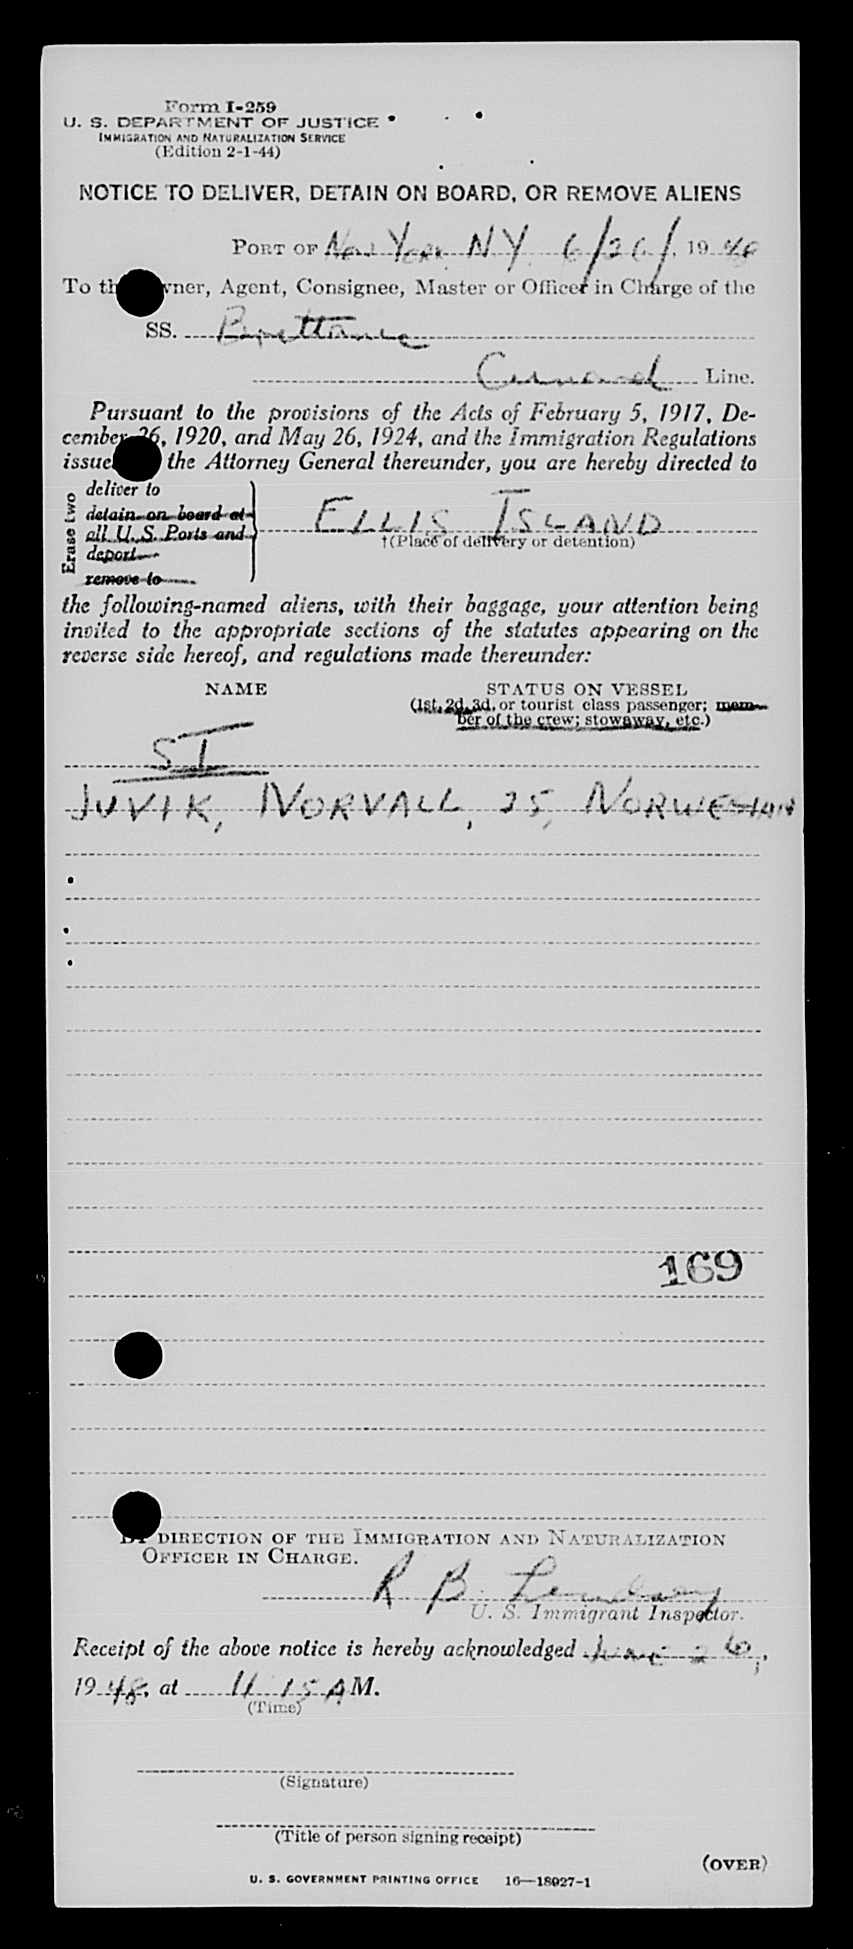 Form I-259
U. S. DEPARTMENT OF JUSTICE
IMMIGRATION AND NATURALIZATION SERVICE
(Edition 2-1-44)
NOTICE TO DELIVER, DETAIN ON BOARD, OR REMOVE ALIENS
PORT OF New York NY 6/26/, 1948
To th wner, Agent, Consignee, Master or Officer in Charge of the
SS.
Cunard Line.
Pursuant to the provisions of the Acts of February 5, 1917, De-
cember 26, 1920, and May 26, 1924, and the Immigration Regulations
issue the Attorney General thereunder, you are hereby directed to
Erase two
deliver to
detain on board at
all U. S. Ports and
deport
remove to
ELLIS ISLAND
†(Place of delivery or detention)
the following-named aliens, with their baggage, your attention being
invited to the appropriate sections of the statutes appearing on the
reverse side hereof, and regulations made thereunder:
NAME STATUS ON VESSEL
(1st, 2d, 3d, or tourist class passenger; mem-
ber of the crew; stowaway, etc.)
SI
JUVIK, NORVALL, 25, NORWEGIAN
169
BY DIRECTION OF THE IMMIGRATION AND NATURALIZATION
OFFICER IN CHARGE.
R B.
U. S. Immigrant Inspector.
Receipt of the above notice is hereby acknowledged June 26,
1948, at 11 15 A M.
(Time)
(Signature)
(Title of person signing receipt)
(OVER)
U. S. GOVERNMENT PRINTING OFFICE 16—18027-1